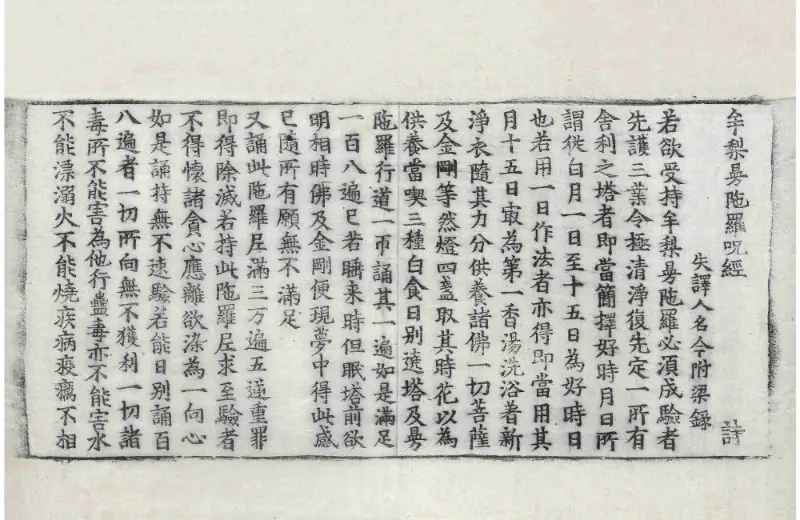 牟梨曼陁羅呪經　詩
失譯人名今附梁録
若欲受持牟梨曼陁羅必湏成驗者
先護三業令極清淨復先定一所有
舎利之塔者即當簡擇好時月日所
謂從白月一日至十五日為好時日
也若用一日作法者亦得即當用其
月十五日㝡為第一香湯洗浴著新
淨衣隨其力分供養諸佛一切菩薩
及金剛等然燈四盞取其時花以為
供養當喫三種白食日別遶塔及曼
陁羅行道一帀誦其一遍如是滿足
一百八遍已若睡来時但眠塔前欲
明相時佛及金剛便現夢中得此感
已隨所有願無不滿足
又誦此陁羅尼滿三万遍五逆重罪
即得除滅若持此陁羅尼求至驗者
不得懷諸貪心應離欲染為一向心
如是誦持無不速驗若能日別誦百
八遍者一切所向無不獲利一切諸
毒所不能害為他行蠱毒亦不能害水
不能漂溺火不能燒疾病疫癘不相